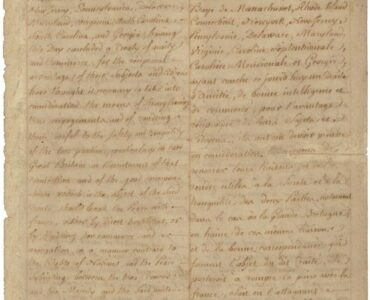 New Jersey, Pennsylvania, Delaware,
Maryland, Virginia, North Carolina,
South Carolina, and Georgia, having
this Day concluded a Treaty of amity
and Commerce, for the reciprocal
advantage of their Subjects and Citizens
have thought it necessary to take into
consideration the means of strengthening
those engagements, and of rendring
them useful to the safety and tranquility
of the two parties, particularly in case
Great Britain in Resentment of that
connection and of the good
which is the object of the said
should break the Peace with
France, either by direct hostilities, or
by hindring her commerce and
navigation, in a manner contrary to
the Rights of Nations, and the Peace
subsisting between the two Crowns
Baye de Massachuset, Rhode island
Connecticut, Newyork, New Jersey
Pensylvanie, Delaware, Maryland
Virginie, Caroline Septentrionale
Caroline Meridionale et Georgie
ayant conclu ce jourd'huy un Traité
d'amitié, de bonne intelligence et
de commerce, pour l'avantage
reciproque de leurs Sujets et
Citoyens, ils ont cru devoir prendre
en consideration
leurs
à la Sureté et à la
tranquilité des deux parties, notament
dans le cas où la Grande Bretagne
en haine de ces mêmes liaisons
et de la bonne correspondance qui
forment l'objet du dit Traité, se
porteroit à rompre la paix avec la
france, soit en l'attaquant